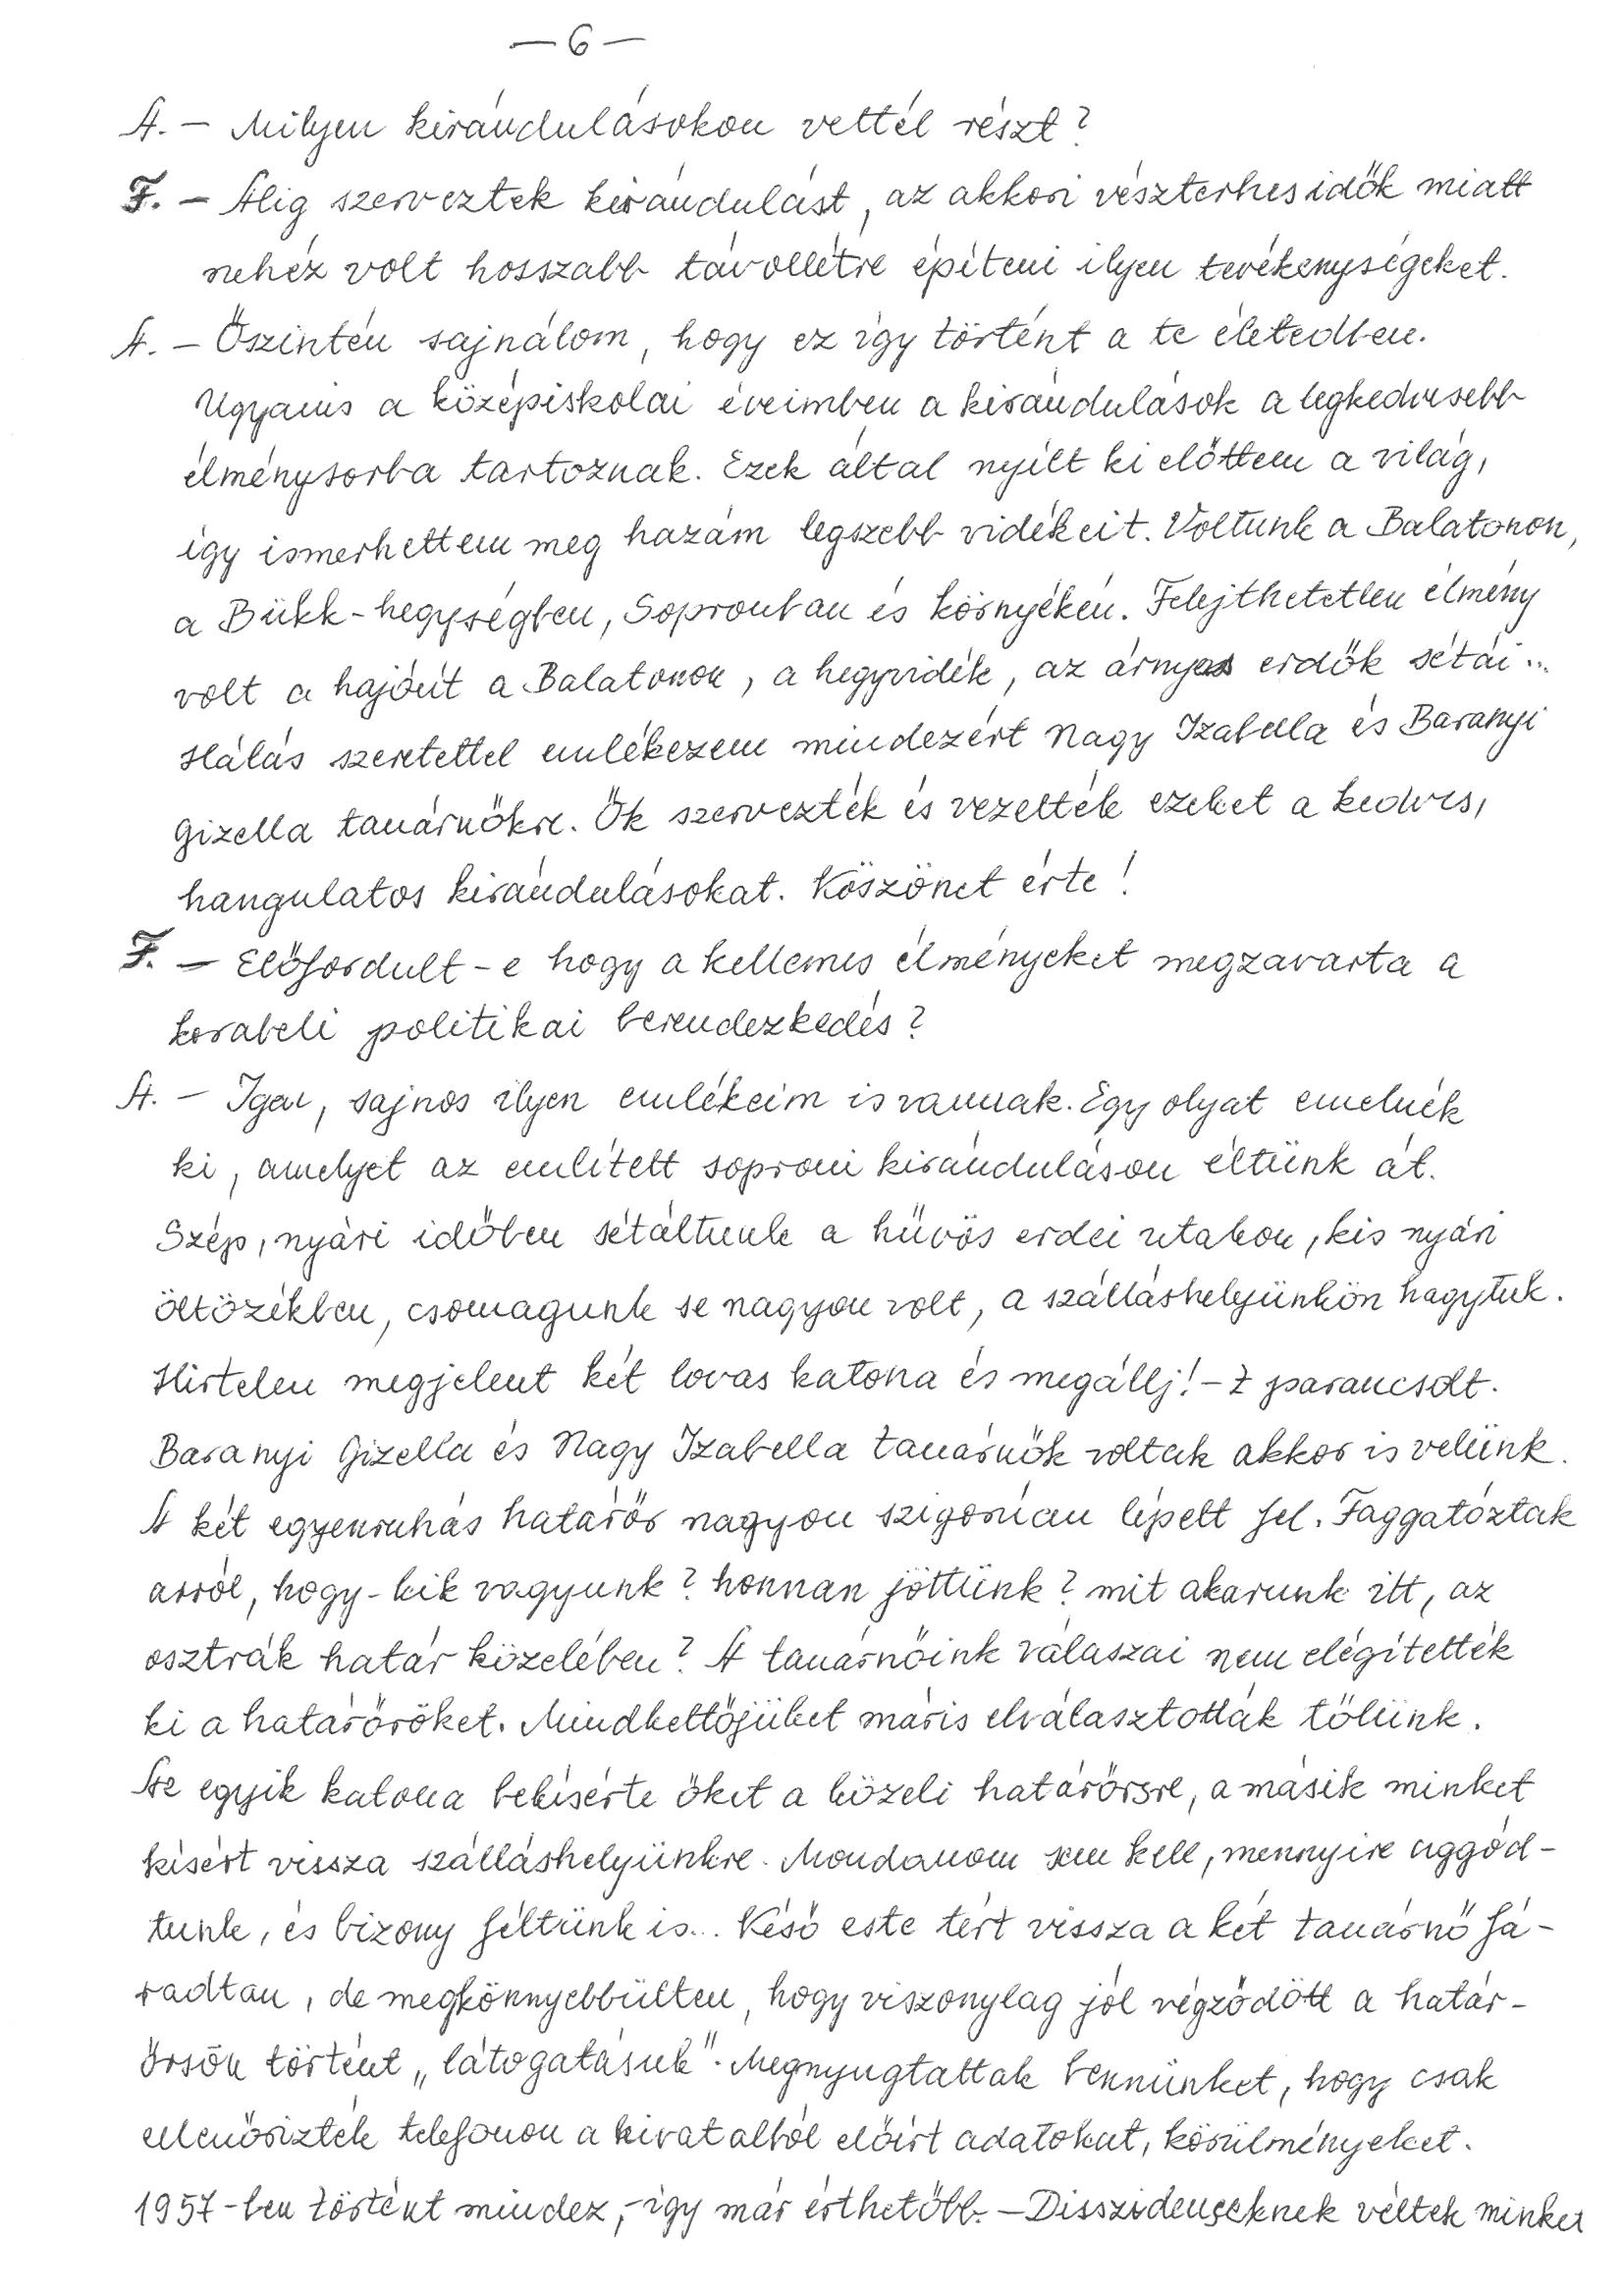 — 6 —
A. — Milyen kirándulásokon vettél részt?
F. — Alig szerveztek kirándulást, az akkori vészterhes idők miatt
nehéz volt hosszabb távollétre építeni ilyen tevékenységeket.
A. — Őszintén sajnálom, hogy ez így történt a te életedben.
Ugyanis a középiskolai éveimben a kirándulások a legkedvesebb
élménysorba tartoznak. Ezek által nyílt ki előttem a világ,
így ismerhettem meg hazám legszebb vidékeit. Voltunk a Balatonon,
a Bükk-hegységben, Sopronban és környékén. Felejthetetlen élmény
volt a hajóút a Balatonon, a hegyvidék, az árnyas erdők sétái...
Hálás szeretettel emlékezem mindezért Nagy Izabella és Baranyi
Gizella tanárnőkre. Ők szervezték és vezették ezeket a kedves,
hangulatos kirándulásokat. Köszönet érte!
F. — Előfordult-e hogy a kellemes élményeket megzavarta a
korabeli politikai berendezkedés?
A. — Igen, sajnos ilyen emlékeim is vannak. Egy olyat emelnék
ki, amelyet az említett soproni kiránduláson éltünk át.
Szép, nyári időben sétáltunk a hűvös erdei utakon, kis nyári
öltözékben, csomagunk se nagyon volt, a szálláshelyünkön hagytuk.
Hirtelen megjelent két lovas katona és megállj!-t parancsolt.
Baranyi Gizella és Nagy Izabella tanárnők voltak akkor is velünk.
A két egyenruhás határőr nagyon szigorúan lépett fel. Faggatóztak
arról, hogy - kik vagyunk? honnan jöttünk? mit akarunk itt, az
osztrák határ közelében? A tanárnőink válaszai nem elégítették
ki a határőröket. Mindkettőjüket máris elválasztották tőlünk.
Az egyik katona bekísérte őket a közeli határőrsre, a másik minket
kísért vissza szálláshelyünkre. Mondanom sem kell, mennyire aggód-
tunk, és bizony féltünk is... Késő este tért vissza a két tanárnő fá-
radtan, de megkönnyebbülten, hogy viszonylag jól végződött a határ-
őrsön történt „látogatásuk". Megnyugtattak bennünket, hogy csak
ellenőrizték telefonon a hivatalból előírt adatokat, körülményeket.
1957-ben történt mindez, - így már érthetőbb. — Disszidenseknek véltek minket